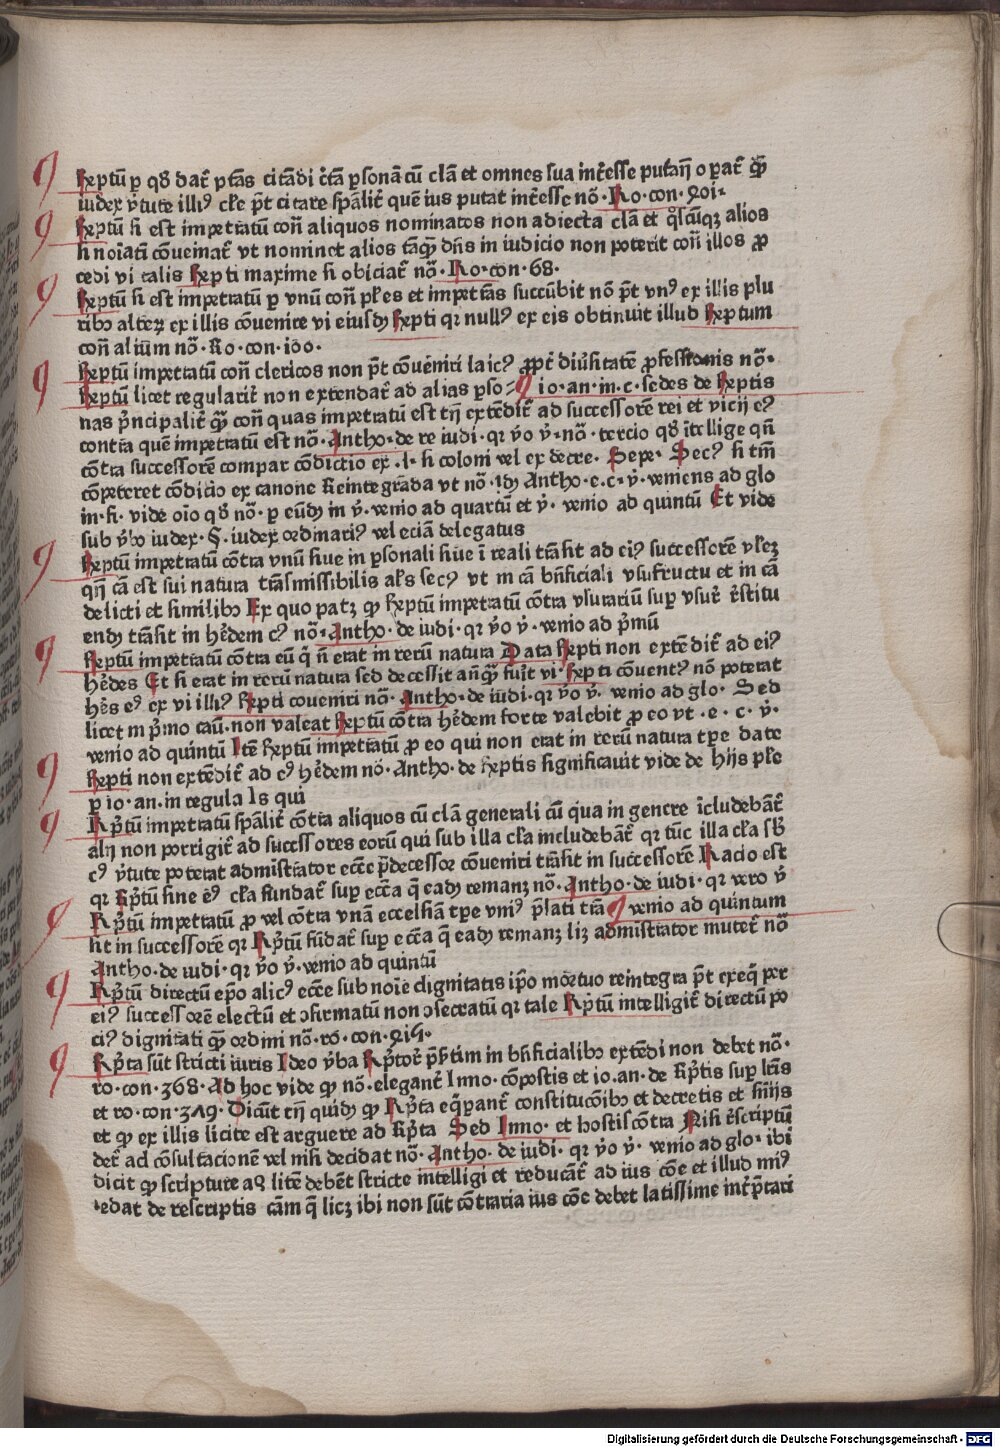 Rxptū p qđ dat᷑ ptās citādi c̄tā psonā cū cla᷑ et omnes sua int᷑esse putātes opat᷑ qꝫ
iudex v̓tute illi⁹ cl̓e p̄t citare sp̄alit᷑ quē ius putat int᷑esse nō · Ro · con · 201 ·
Rxptū si est impetratū cōtͬ aliquos nominatos non adiecta cla᷑ et q̓scūqꝫ alios
si noīati cōueniat᷑ vt nominet alios tāqꝫ dn̄s in iudicio non poterit cōtͬ illos ꝓ
cedi vi talis Rxpti maxime si obiciat᷑ nō · Ro · con · 68 ·
Rxptū si est impetratū p vnū cōtͬ pl̓es et impet᷑as succūbit nō p̄t vn⁹ ex illis plu
ribꝫ alteꝝ ex illis cōuenire vi eiusdꝫ Rxpti qꝛ null⁹ ex eis obtinuit illud Rxptum
cōtͬ alium nō · Ro · con · 100 ·
Rxptū impetratū cōtͬ clericos non p̄t cōueniri laic⁹ ꝓpt᷑ diu̓sitatē ꝓfessionis nō ·
Rxptū licet regularit᷑ non extendat᷑ ad alias pso⸗ io · an · in · c · sedes de Rxptis
nas p̓ncipalit᷑ qꝫ cōtͬ quas impetratū est tn̄ extēdit᷑ ad successorē rei et vicij e⁹
contra quē impetratū est nō · Antho · de re iudi · qꝛ v̓o v̓ · nō · tercio qđ ītellige qn̄
cōtra successorē compar cōdictio ex · l · si coloni vel ex decre · Sepe · Sec⁹ si tm̄
cōpeteret cōdicio ex canone Reintegrāda vt nō · idꝫ Antho · e · c · v̓ · veniens ad glo
in · fi · vide oīo qđ nō · p eūdꝫ in v̓ · venio ad quartū et v̓ · venio ad quintū Et vide
sub v̓bo iudex · §. iudex ordinari⁹ vel eciā delegatus
Rxptū impetratū cōtra vnū siue in psonali siue ī reali trāsit ad ei⁹ successorē vl̓eꝫ
qn̄ cā est sui natura trāsmissibilis al̓s sec⁹ vt in cā bn̄ficiali vsufructu et in cā
delicti et similibꝫ Ex quo patꝫ ꝙ Rxptū impetratū cōtra vsurariū sup vsur᷑ r̓stitu
endꝫ trāsit in h̓edem e⁹ nō · Antho · de iudi · qꝛ v̓o v̓ · venio ad p̓mū
Rxptū impetratū cōtra eū q̄ n̄ erat in rerū natura Data Rxpti non extēdit᷑ ad ei⁹
h̓edes Et si erat in rerū natura sed decessit anqꝫ fuit vi · Rxpti cōuent⁹ nō poterat
h̓es e⁹ ex vi illi⁹ Rxpti cōueniri nō · Antho · de iudi · qꝛ v̓o v̓ · venio ad glo · Sed
licet in p̓mo cau · non valeat Rxptū cōtra h̓edem forte valebit ꝓ eo vt · e · c · v̓ ·
venio ad quintū Itē Rxptū impetratū ꝓ eo qui non erat in rerū natura tp̄e date
Rxpti non extēdit᷑ ad e⁹ h̓edem nō · Antho · de Rxptis significauit vide de hijs pl̓e
p io · an · in regula Is qui
Rp̓tū impetratū sp̄alit᷑ cōtra aliquos cū cla᷑ generali cū qua in genere īcludebāt᷑
alij non porrigit᷑ ad successores eorū qui sub illa cl̓a includebāt᷑ qꝛ tūc illa cl̓a sꝫ
e⁹ v̓tute poterat admistrator ecce᷑ p̄decessor cōueniri trāsit in successorē Racio est
qꝛ Rp̓tū sine e⁹ cl̓a fundat᷑ sup ecc̄a q̄ eadꝫ remanꝫ nō · Antho · de iudi · qꝛ vero v̓
Rp̓tū impetratū ꝓ vel cōtra vnā ecclesiā tp̄e vni⁹ p̄lati trā venio ad quintum
sit in successorē qꝛ Rp̓tū fūdat᷑ sup ecc̄a q̄ eadꝫ remanꝫ licꝫ admistrator mutet᷑ nō
Antho · de iudi · qꝛ v̓o v̓ · venio ad quintū
Rp̓tū directū ep̄o alic⁹ ecce᷑ sub noīe dignitatis ip̄o mortuo reintegra p̄t exeq̓ per
ei⁹ successorē electū et ɔfirmatū non ɔsecratū qꝛ tale Rp̓tū intelligit᷑ directū po
ci⁹ dignitati qꝫ ordini nō · ro · con · 215 ·
Rp̓ta sūt stricti iuris Ideo v̓ba Rp̓tor᷑ p̄s̄tim in bn̄ficialibꝫ extēdi non debet nō ·
ro · con · 368 · Ad hoc vide ꝙ nō · elegant᷑ Inno · cōpostis et io · an · de Rp̓tis sup lr̄is
et ro · con · 319 · Dicūt tn̄ quidꝫ ꝙ Rp̓ta eq̓parant᷑ constitucōibꝫ et decretis et similijs
et ꝙ ex illis licite est arguere ad Rp̓ta Sed Inno · et hostis cōtra Nisi r̓scriptū
det᷑ ad cōsultacionē vel nisi decidat nō · Antho · de iudi · qꝛ v̓o v̓ · venio ad glo · ibi
dicit ꝙ scripture aꝗ litē debēt stricte intelligi et reducāt᷑ ad ius cōe et illud mi⁹
ledat de rescriptis cām q̄ licꝫ ibi non sūt cōtraria ius cōe debet latissime int᷑p̄tari
Digitalisierung gefördert durch die Deutsche Forschungsgemeinschaft - DFG